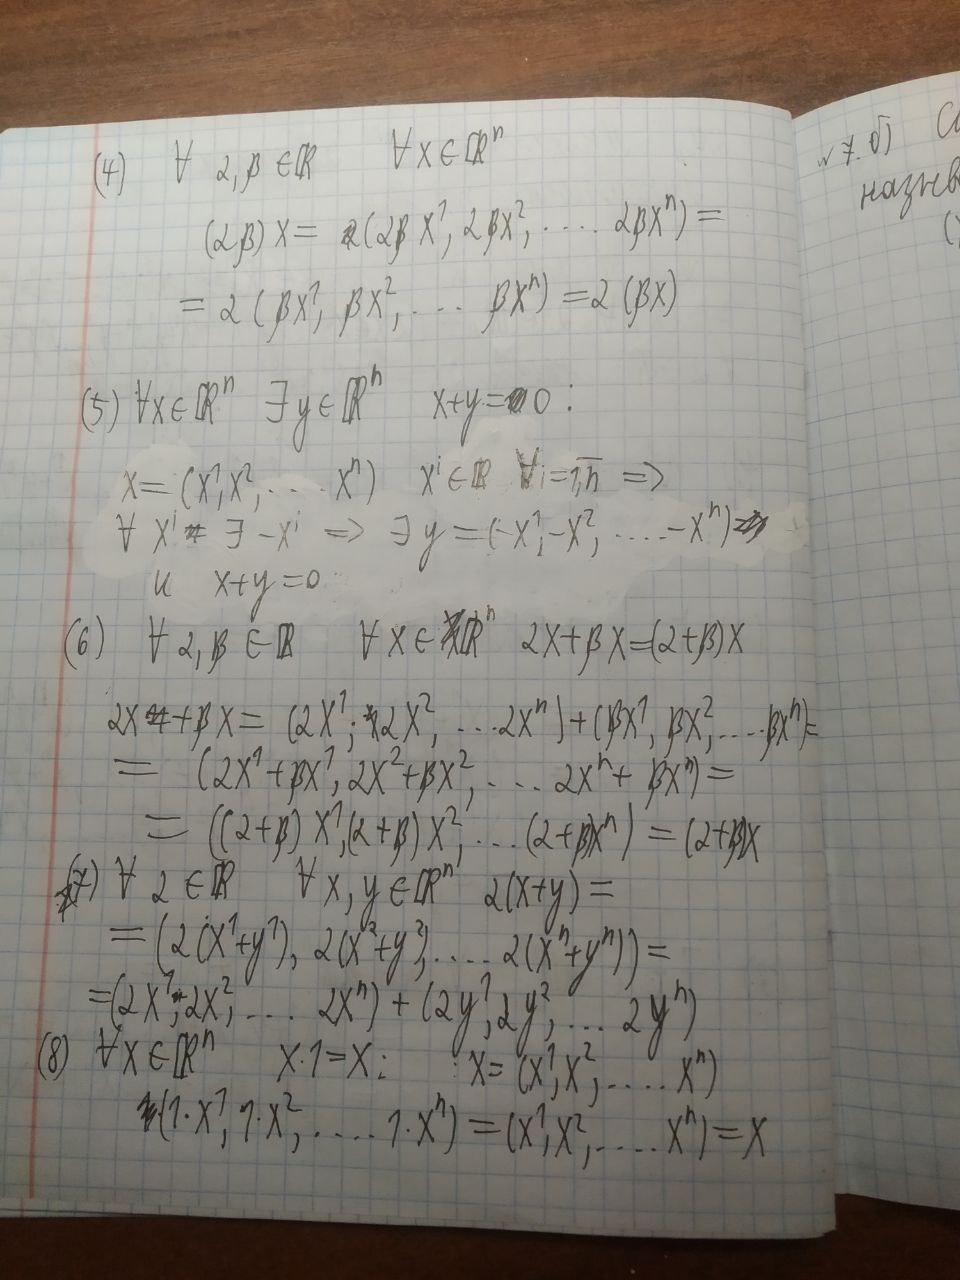 (4) ∀ α, β ∈ ℝ ∀ x ∈ ℝⁿ
(αβ) x = (αβ x¹, αβx², .... αβxⁿ) =
= α (βx¹, βx², ... βxⁿ) = α (βx)
(5) ∀x ∈ ℝⁿ ∃ y ∈ ℝⁿ x+y = 0 :
x = (x¹, x², .... xⁿ) xⁱ ∈ ℝ ∀i = 1,n̅ ⇒
∀ xⁱ ∃ -xⁱ ⇒ ∃ y = (-x¹, -x², .... -xⁿ)
и x+y = 0
(6) ∀ α, β ∈ ℝ ∀ x ∈ ℝⁿ αx + βx = (α+β)x
αx + βx = (αx¹, αx², ... αxⁿ) + (βx¹, βx², .... βxⁿ) =
= (αx¹ + βx¹, αx² + βx², ... αxⁿ + βxⁿ) =
= ((α+β) x¹, (α+β) x², ... (α+β)xⁿ) = (α+β)x
(7) ∀ α ∈ ℝ ∀ x, y ∈ ℝⁿ α(x+y) =
= (α(x¹+y¹), α(x²+y²), .... α(xⁿ+yⁿ)) =
= (αx¹, αx², .... αxⁿ) + (αy¹, αy², ... αyⁿ)
(8) ∀x ∈ ℝⁿ x·1 = x : x = (x¹, x², .... xⁿ)
(1·x¹, 1·x², .... 1·xⁿ) = (x¹, x², .... xⁿ) = x
№7.б)
назнв